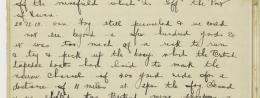 off the minefield which is off the Port
of
20.12.18. Fog still prevailed & we could
not see beyond a few hundred yards &
it was too much of a risk to run
& try & pick up the buoys which the British
boats had laid to mark the
narrow channel of 400 yards wide for a
distance of 11 miles. At 2pm the fog cleared
British